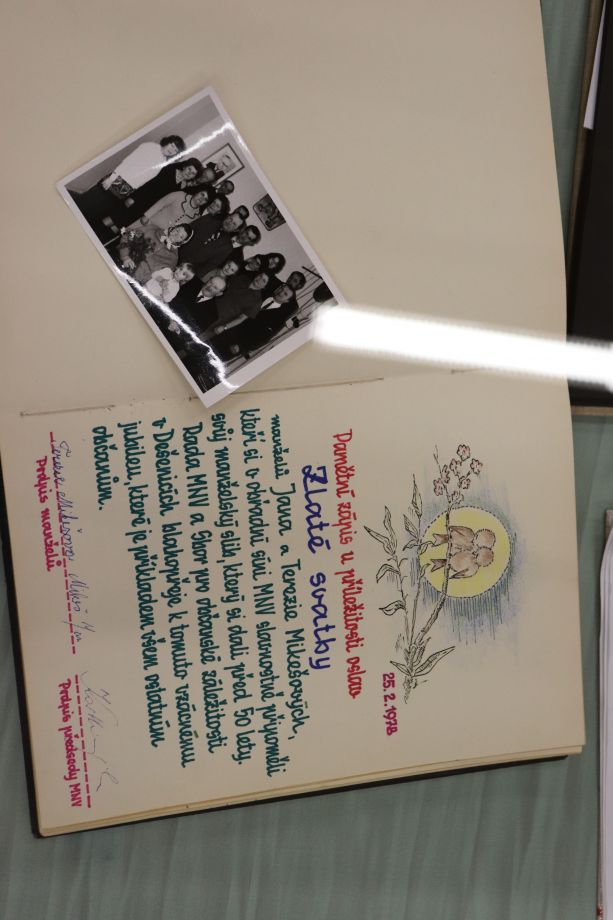 25.2.1978
Pamětní zápis u příležitosti oslav
Zlaté svatby
manželů Jana a Terezie Mikešových,
kteří si v obřadní síni MNV slavnostně připomněli
svůj manželský slib, který si dali před 50 lety.
Rada MNV a Sbor pro občanské záležitosti
v Dešenicích blahopřeje k tomuto vzácnému
jubileu, které je příkladem všem ostatním
občanům.
Mikešová Mikeš
Podpis manželů Podpis předsedy MNV